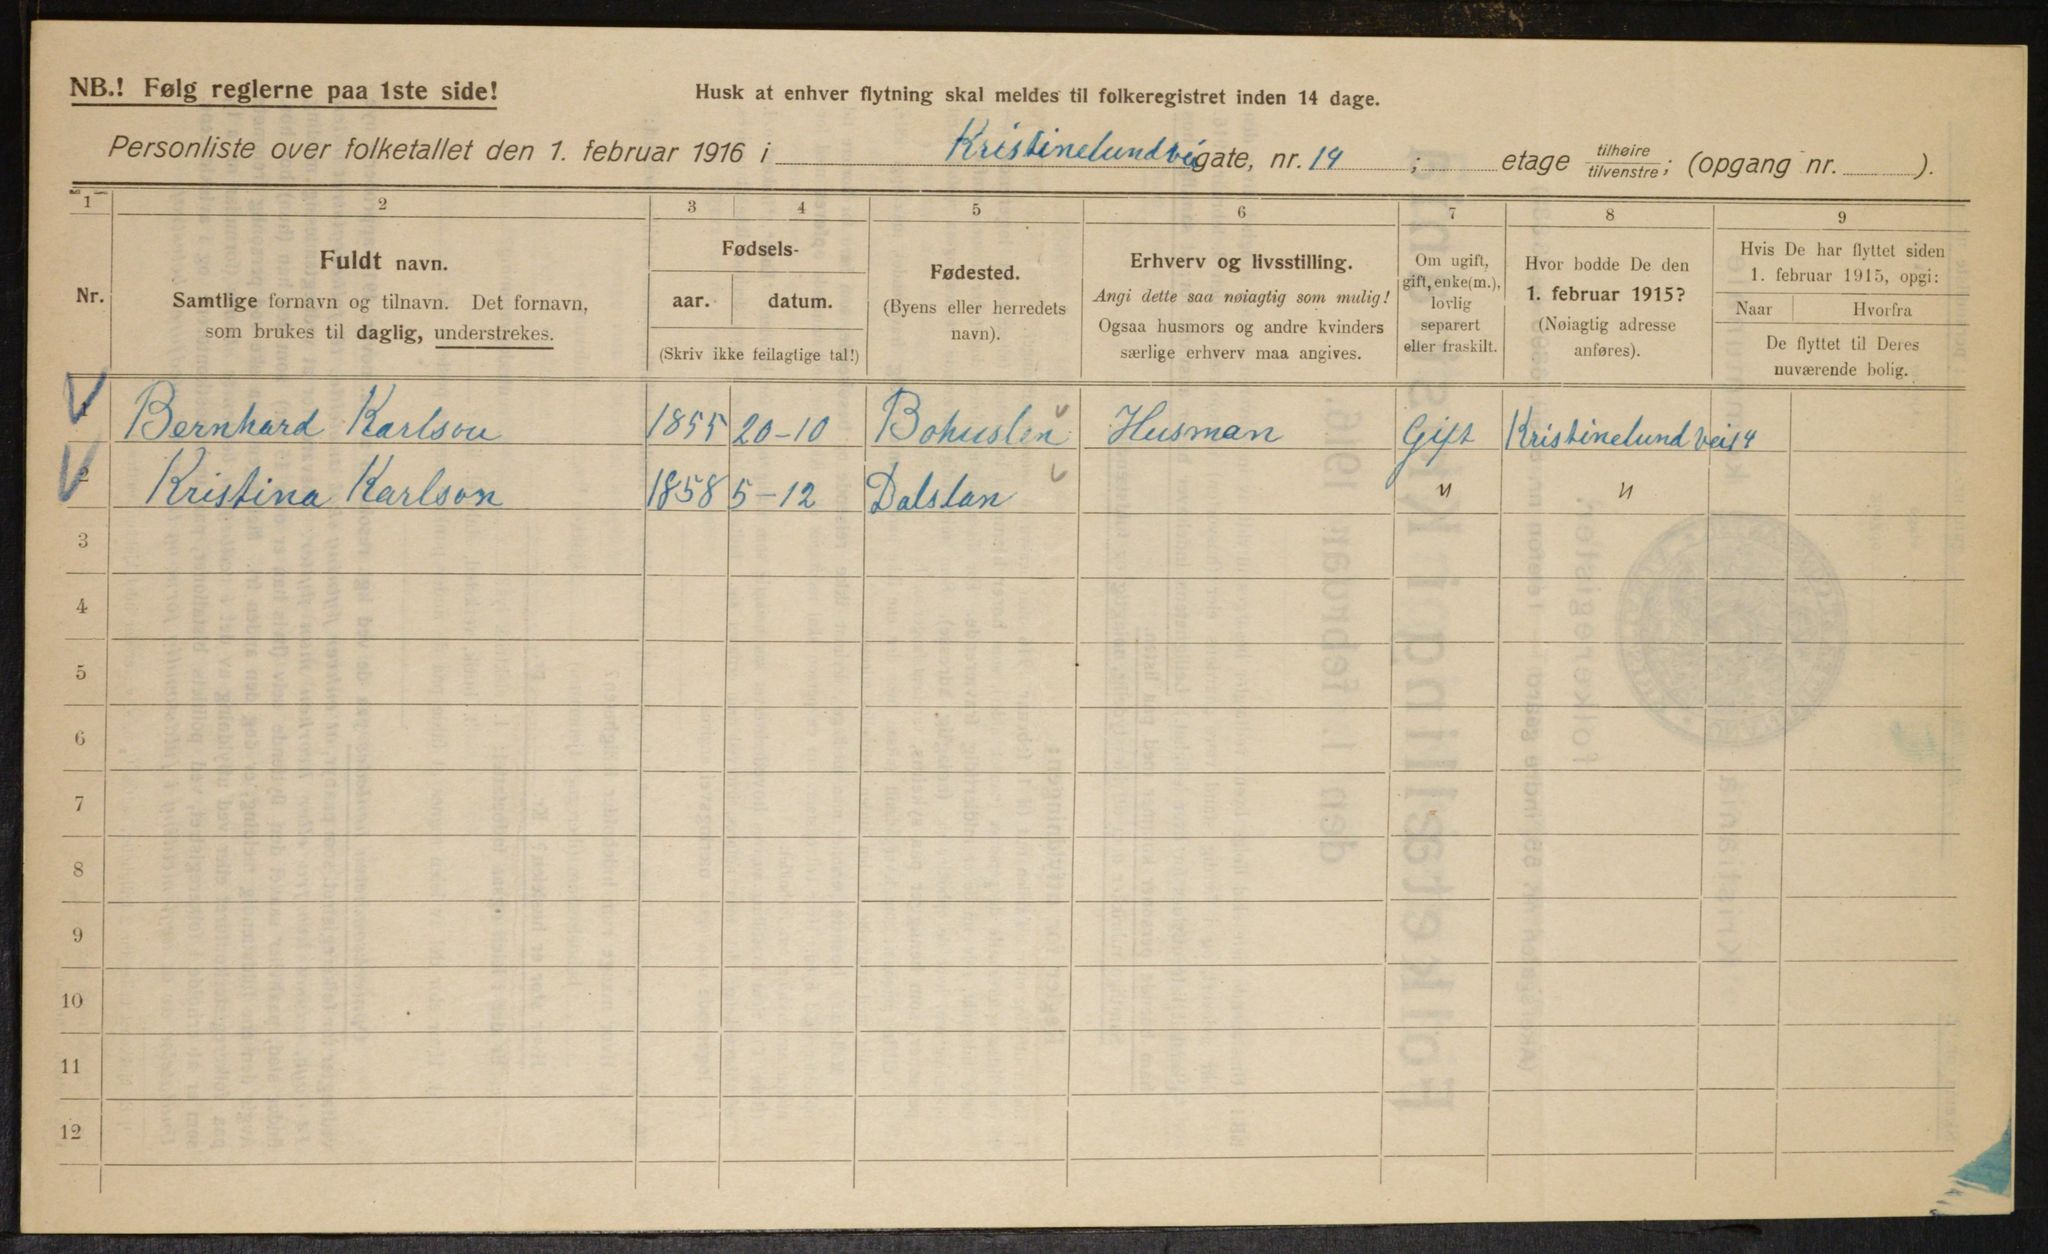 NB.! Følg reglerne paa 1ste side!
Husk at enhver flytning skal meldes til folkeregistret inden 14 dage.
Personliste over folketallet den 1. februar 1916 i Kristinelundvei gate, nr. 14 ; etage tilhøire/tilvenstre; (opgang nr. ).
1 2 3 4 5 6 7 8 9
Nr.
Fuldt navn.
Samtlige fornavn og tilnavn. Det fornavn,
som brukes til daglig, understrekes.
Fødsels-
aar. datum.
(Skriv ikke feilagtige tal!)
Fødested.
(Byens eller herredets
navn).
Erhverv og livsstilling.
Angi dette saa nøiagtig som mulig!
Ogsaa husmors og andre kvinders
særlige erhverv maa angives.
Om ugift,
gift, enke(m.),
lovlig
separert
eller fraskilt.
Hvor bodde De den
1. februar 1915?
(Nøiagtig adresse
anføres).
Hvis De har flyttet siden
1. februar 1915, opgi:
Naar Hvorfra
De flyttet til Deres
nuværende bolig.
1 Bernhard Karlson 1855 20-10 Bohuslen Husman Gift Kristinelund vei 14
2 Kristina Karlson 1858 5-12 Dalslan " "
3
4
5
6
7
8
9
10
11
12